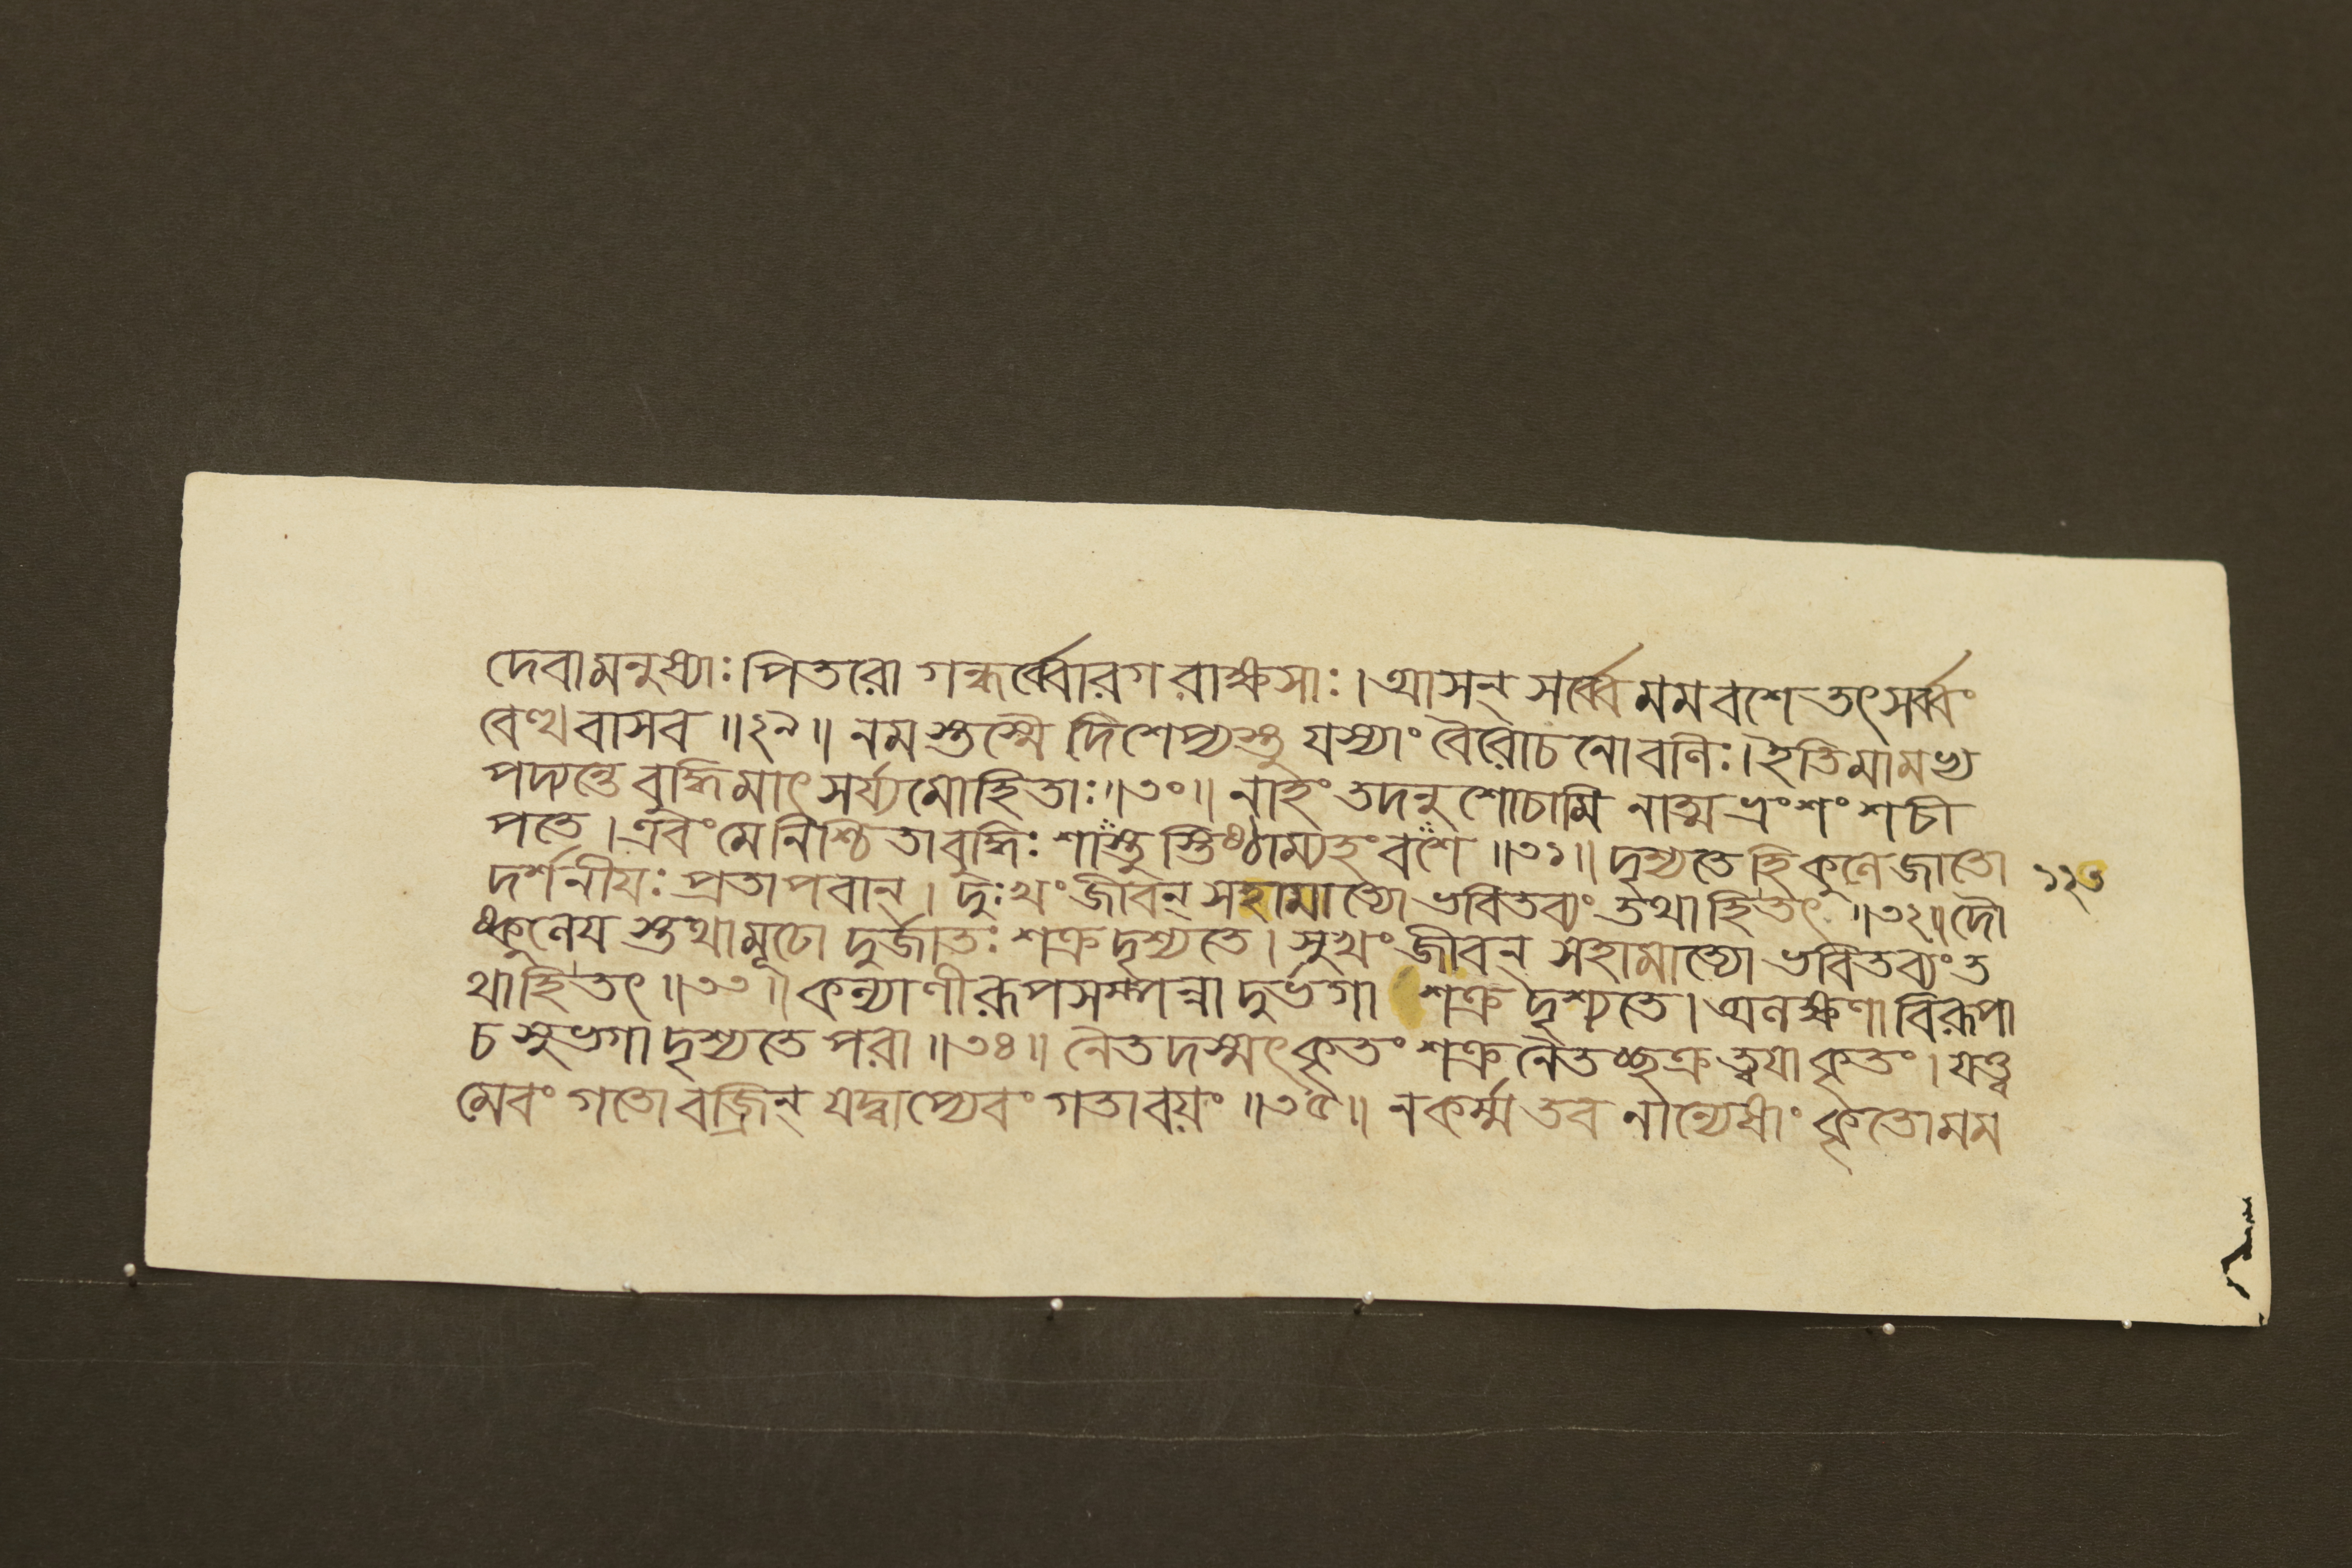 দেবামনুষ্যাঃ পিতরো গন্ধর্ব্বোরগ রাক্ষসাঃ। আসন্ সর্ব্বে মম বশে তৎসর্ব্বং
বেত্থ বাসব ॥২৯॥ নমস্তস্মৈ দিশেপ্যস্তু যস্যাং বৈরোচনো বলিঃ। ইতি মামভ্য
পদ্যন্তে বুদ্ধিমাৎসর্য্যমোহিতাঃ॥৩০॥ নাহং তদনুশোচামি নাত্ম ভ্রংশং শচী
পতে। এবং মে নিশ্চিতা বুদ্ধিঃ শাস্তুস্তিষ্ঠাম্যহং বশে ॥৩১॥ দৃশ্যতে হি কুলে জাতো
দর্শনীয়ঃ প্রতাপবান্। দুঃখং জীবন্ সহামাত্যো ভবিতব্যং তথা হি তৎ ॥৩২॥ দৌ
ষ্কুলেয স্তথা মূঢো দুর্জাতঃ শক্র দৃশ্যতে। সুখং জীবন্ সহামাত্যো ভবিতব্যং ত
থা হি তৎ ॥৩৩॥ কল্যাণী রূপসম্পন্না দুর্ভগা শক্র দৃশ্যতে। অলক্ষণা বিরূপা
চ সুভগা দৃশ্যতে পরা ॥৩৪॥ নৈতদস্মৎকৃতং শক্র নৈতচ্ছক্র ত্বযা কৃতং। যত্ত্ব
মেবং গতো বজ্রিন্ যদ্বাপ্যেবং গতা বয়ং ॥৩৫॥ ন কর্ম্ম তব নান্যেষাং কৃতো মম
১২৩